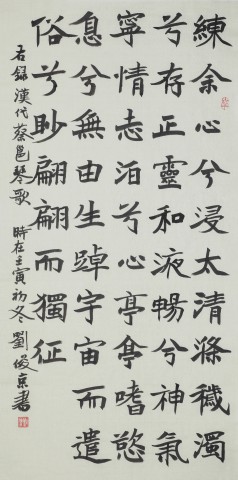 練余心兮浸太清滌穢濁
兮存正靈和液暢兮神氣
寧情志泊兮心亭亭嗜慾
息兮無由生踔宇宙而遺
俗兮眇翩翩而獨征
右錄漢代蔡邕琴歌 時在壬寅初冬 劉俊京書